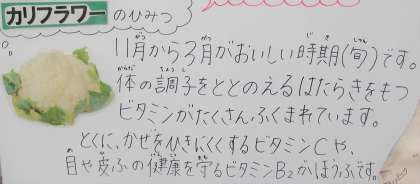 カリフラワーのひみつ
11月から3月がおいしい時期(旬)です。
体の調子をととのえるはたらきをもつ
ビタミンがたくさんふくまれています。
とくに、かぜをひきにくくするビタミンCや、
目や皮ふの健康を守るビタミンB2がほうふです。